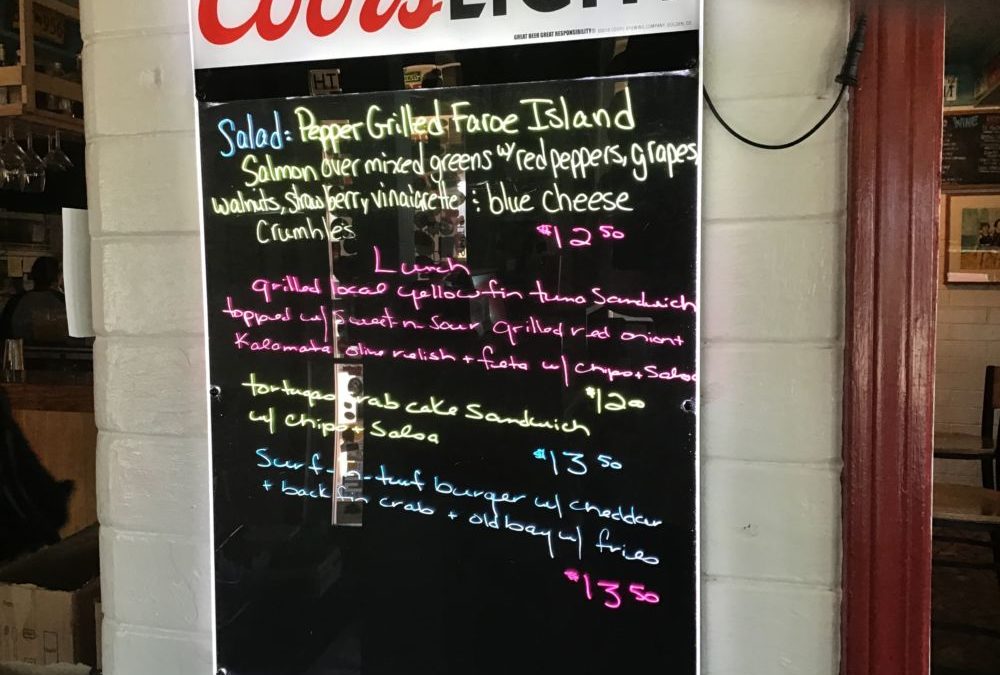 Coors LIGHT
GREAT BEER GREAT RESPONSIBILITY®
Salad: Pepper Grilled Faroe Island
Salmon over mixed greens w/ red peppers, grapes,
walnuts, strawberry vinaigrette : blue cheese
Crumbles $12 50
Lunch
grilled local yellowfin tuna Sandwich
topped w/ Sweet n Sour grilled red onion +
Kalamata olive relish + feta w/ chips + Salsa
$12 00
tortugas crab cake Sandwich
w/ chips + Salsa
$13 50
Surf-n-turf burger w/ cheddar
+ back fin crab + old bay w/ fries
$13 50
WINE